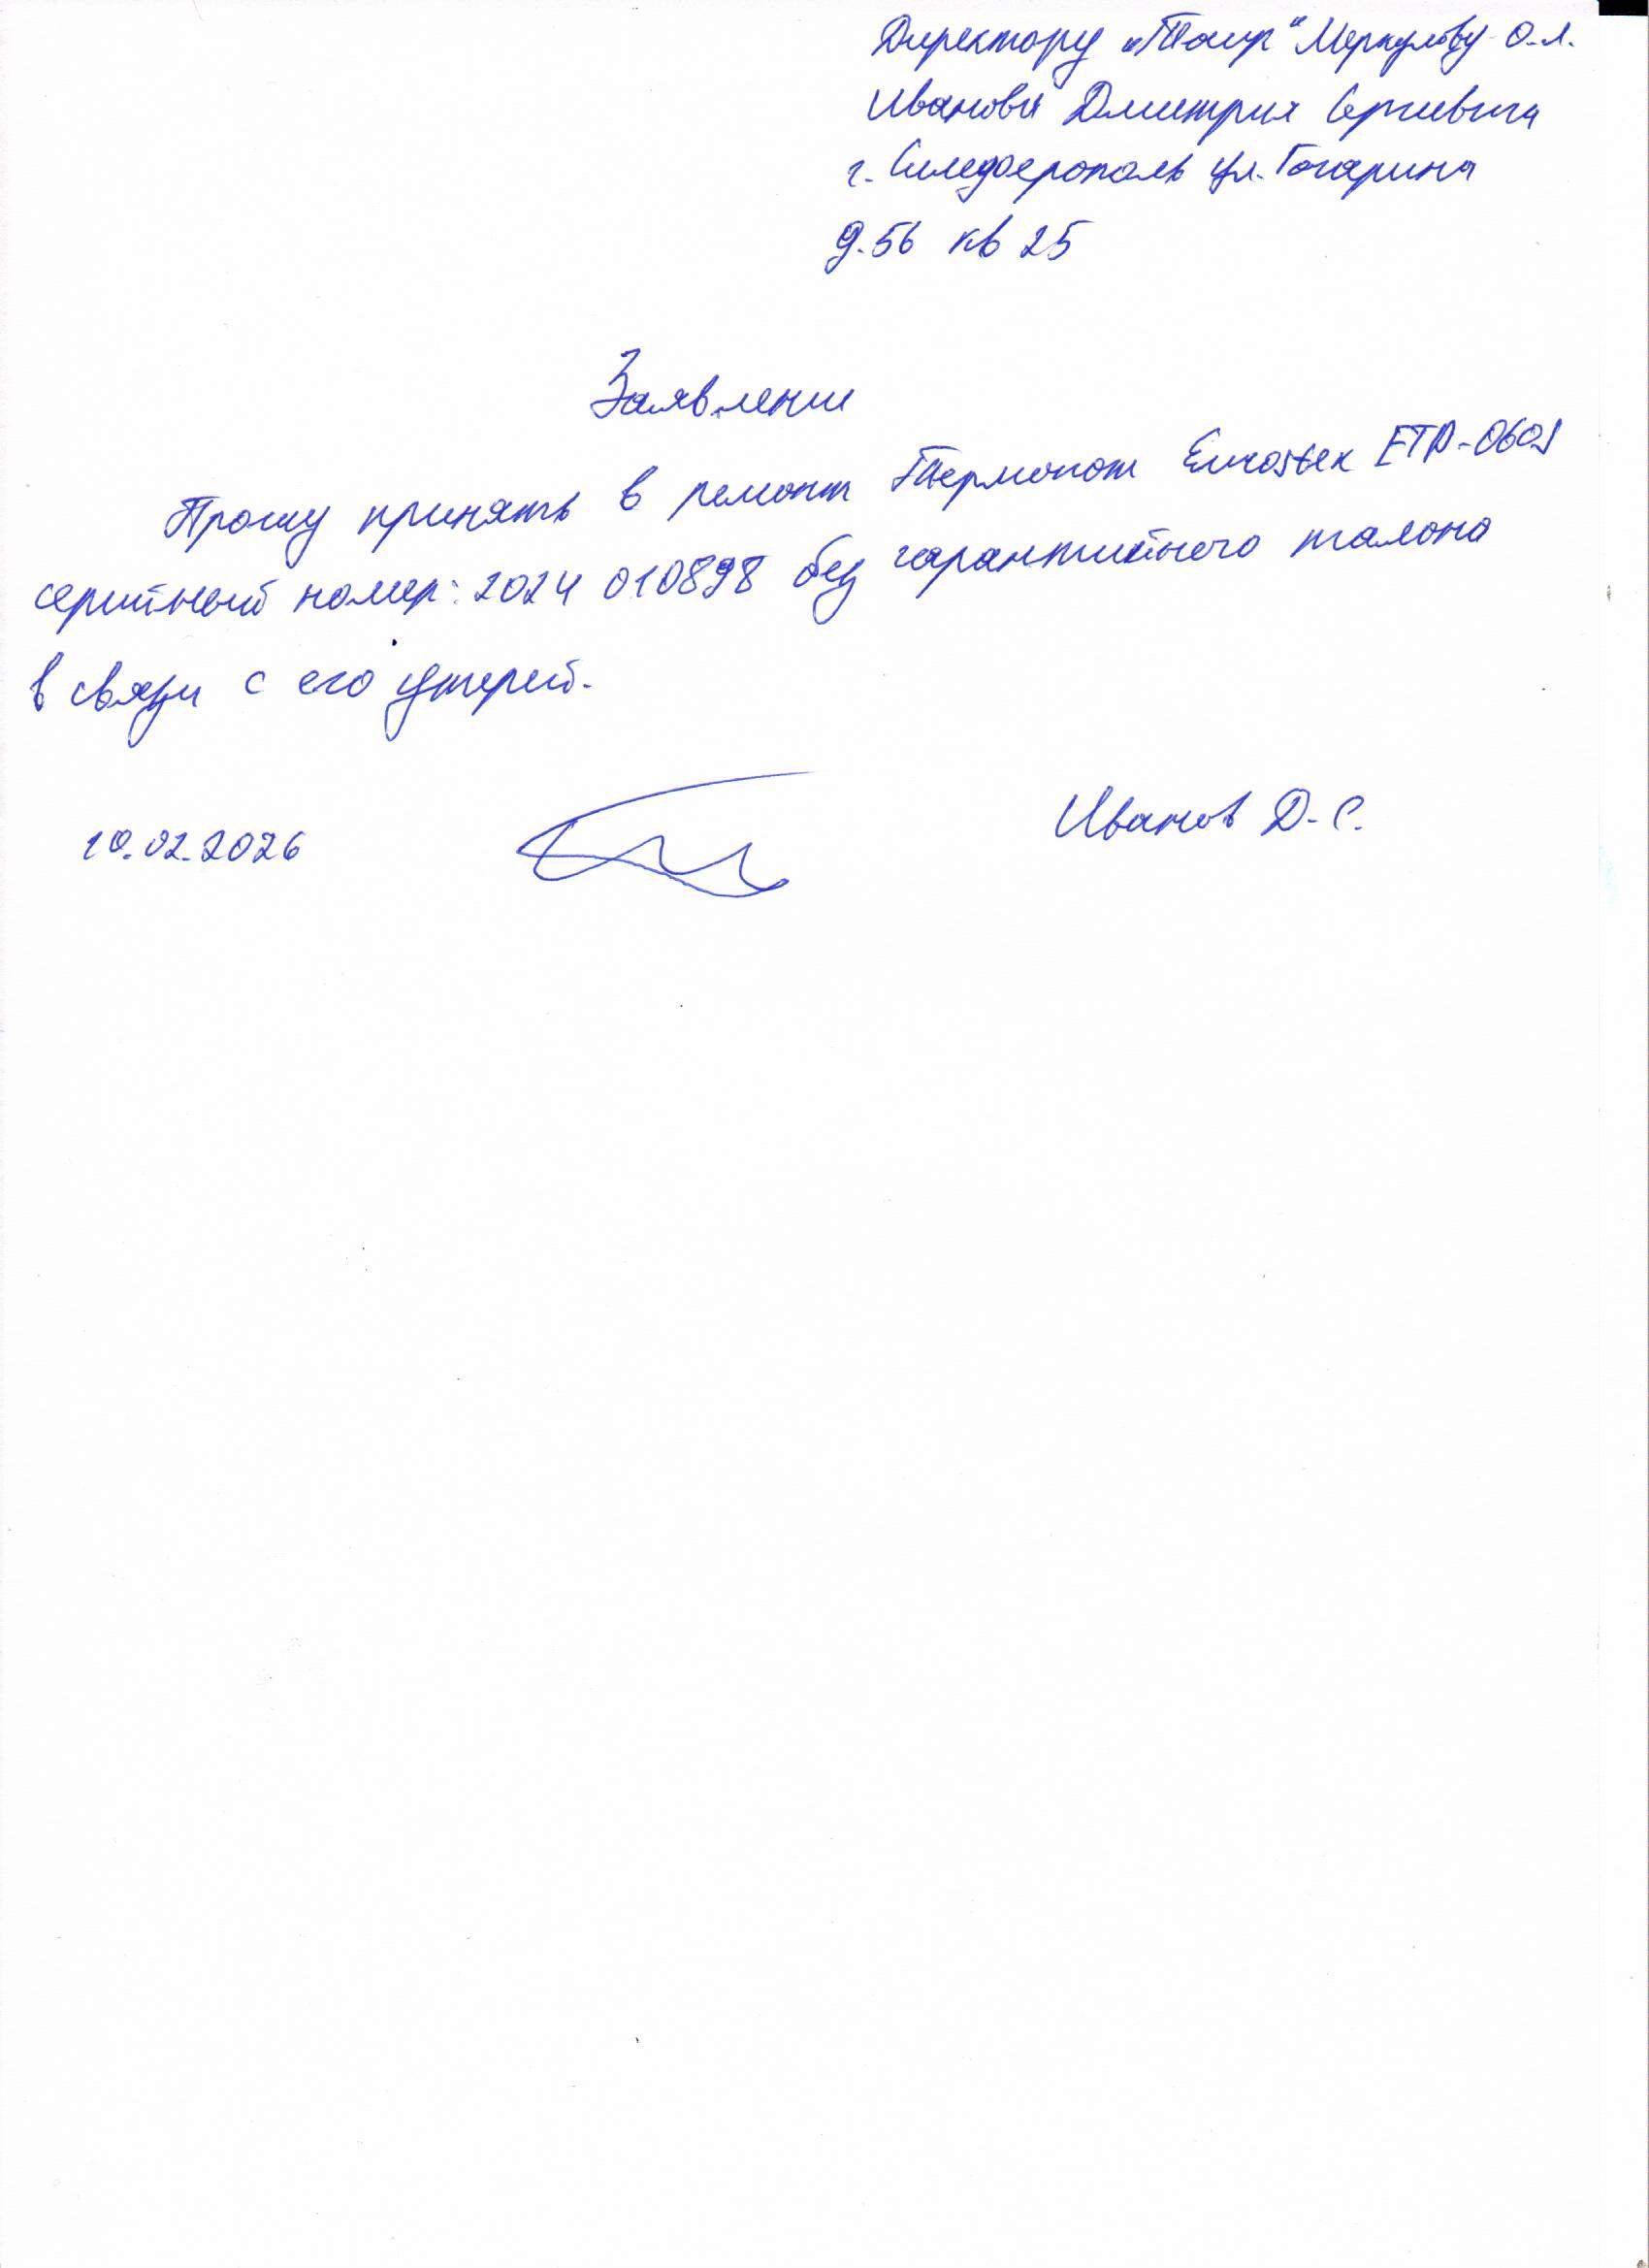 Директору "Таир" Меркулову О.Л.
Иванова Дмитрия Сергеевича
г. Симферополь ул. Гагарина
д.56 кв 25
Заявление
Прошу принять в ремонт Термопот Eurostek ETP-060S
серийный номер: 2024 010898 без гарантийного талона
в связи с его утерей.
10.02.2026 Иванов Д.С.